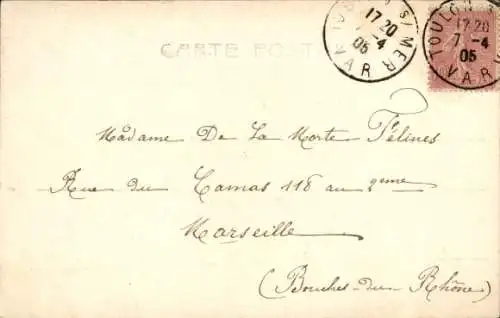 TOULON S/ MER
17 20
7 -4
05
VAR
TOULON
17 20
7 -4
05
VAR
CARTE POSTA
Madame De La Morte Félines
Rue du Camas 118 au 2eme
Marseille
(Bouches-du-Rhône)